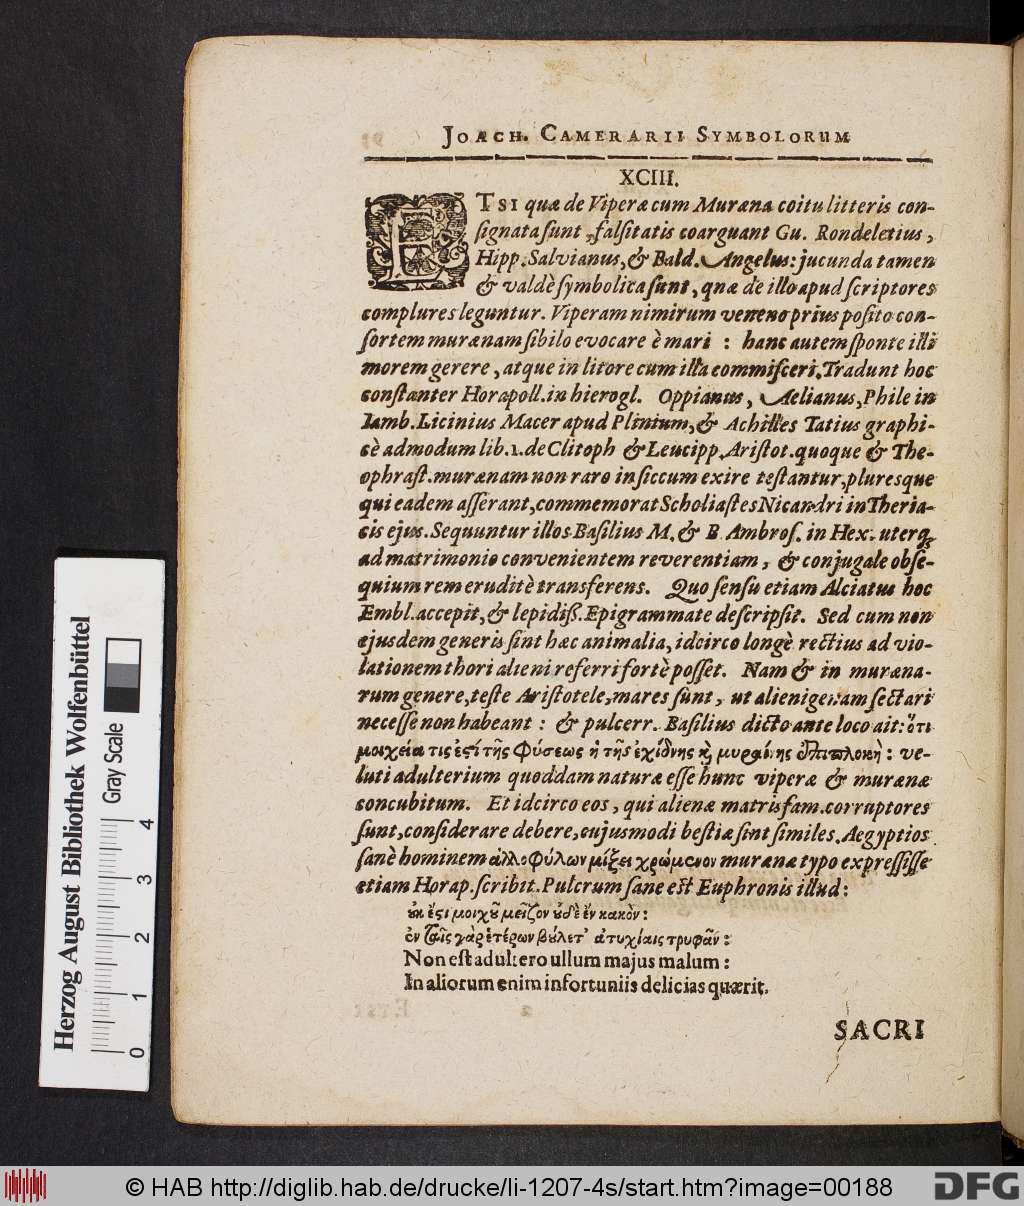 JOACH. CAMERARII SYMBOLORUM
XCIII.
ETSI quæ de Viperæ cum Muræna coitu litteris con-
signata sunt, falsitatis coarguant Gu. Rondeletius,
Hipp. Salvianus, & Bald. Angelus: jucunda tamen
& valdè symbolica sunt, qnæ de illo apud scriptores
complures leguntur. Viperam nimirum veneno prius posito con-
sortem murænam sibilo evocare è mari : hanc autem sponte illi
morem gerere, atque in litore cum illa commisceri. Tradunt hoc
constanter Horapoll. in hierogl. Oppianus, Aelianus, Phile in
Iamb. Licinius Macer apud Plinium, & Achilles Tatius graphi-
cè admodum lib. 1. de Clitoph & Leucipp. Aristot. quoque & The-
ophrast. murænam non raro in siccum exire testantur, pluresque
qui eadem asserant, commemorat Scholiastes Nicandri in Theria-
cis ejus. Sequuntur illos Basilius M. & B. Ambros. in Hex. uterq;
ad matrimonio convenientem reverentiam, & conjugale obse-
quium rem eruditè transferens. Quo sensu etiam Alciatus hoc
Embl. accepit, & lepidiß. Epigrammate descripsit. Sed cum non
ejusdem generis sint hæc animalia, idcirco longè rectius ad vio-
lationem thori alieni referri fortè posset. Nam & in muræna-
rum genere, teste Aristotele, mares sunt, ut alienigenam sectari
necesse non habeant : & pulcerr. Basilius dicto ante loco ait: ὅτι
μοιχεία τις ἐστὶ τῆς φύσεως ἡ τῆς ἐχίδνης κὴ μυραίνης ἐπιπλοκὴ: ve-
luti adulterium quoddam naturæ esse hunc viperæ & murænæ
concubitum. Et idcirco eos, qui alienæ matrisfam. corruptores
sunt, considerare debere, cujusmodi bestiæ sint similes. Aegyptios
sanè hominem ἀλλοφύλων μίξει χρώμενον murænæ typo expressisse
etiam Horap. scribit. Pulcrum sane est Euphronis illud:
οὐκ ἔστι μοιχοῦ μεῖζον οὐδὲ ἓν κακὸν:
ἐν ταῖς γὰρ ἑτέρων βούλετ' ἀτυχίαις τρυφᾶν:
Non est adultero ullum majus malum:
In aliorum enim infortuniis delicias quærit.
SACRI
Herzog August Bibliothek Wolfenbüttel
Gray Scale
0 1 2 3 4
© HAB http://diglib.hab.de/drucke/li-1207-4s/start.htm?image=00188
DFG